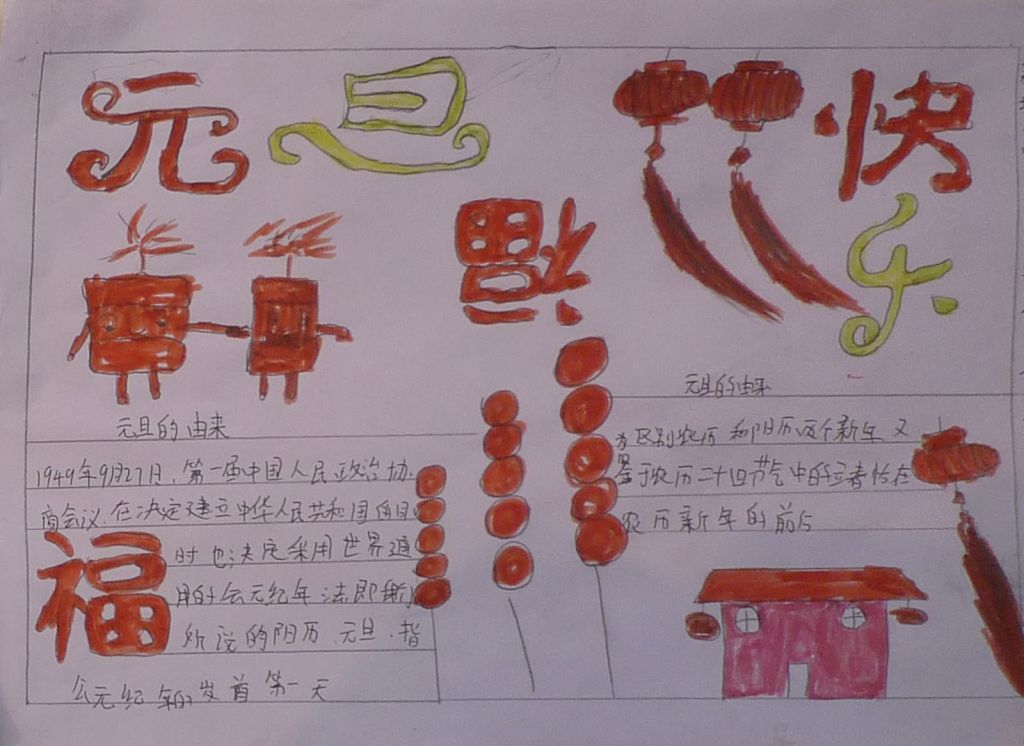 元旦
快
乐
福
元旦的由来
1949年9月27日,第一届中国人民政治协
商会议.在决定建立中华人民共和国的同
福
时也决定采用世界通
用的公元纪年法即我们
所说的阳历.元旦.指
公元纪年的岁首第一天
元旦的由来
为区别农历和阳历两个新年又
鉴于农历二十四节气中的立春恰在
农历新年的前后